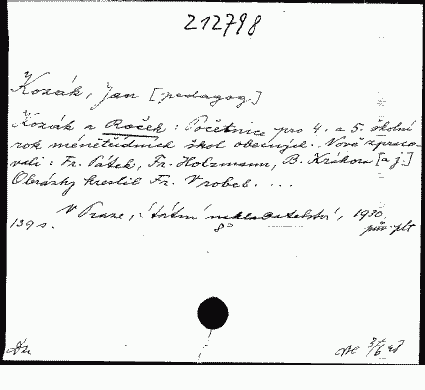 212798
Kozák, Jan [pedagog]
Kozák a Roček: Početnice pro 4. a 5. školní
rok ménětřídních škol obecných. Nově zpraco-
vali: Fr. Pátek, Fr. Holzmann, B. Krákora [a j.]
Obrázky kreslil Fr. Vrobel. ...
V Praze, Státní nakladatelství, 1930,
139 s. 8° pův. plt